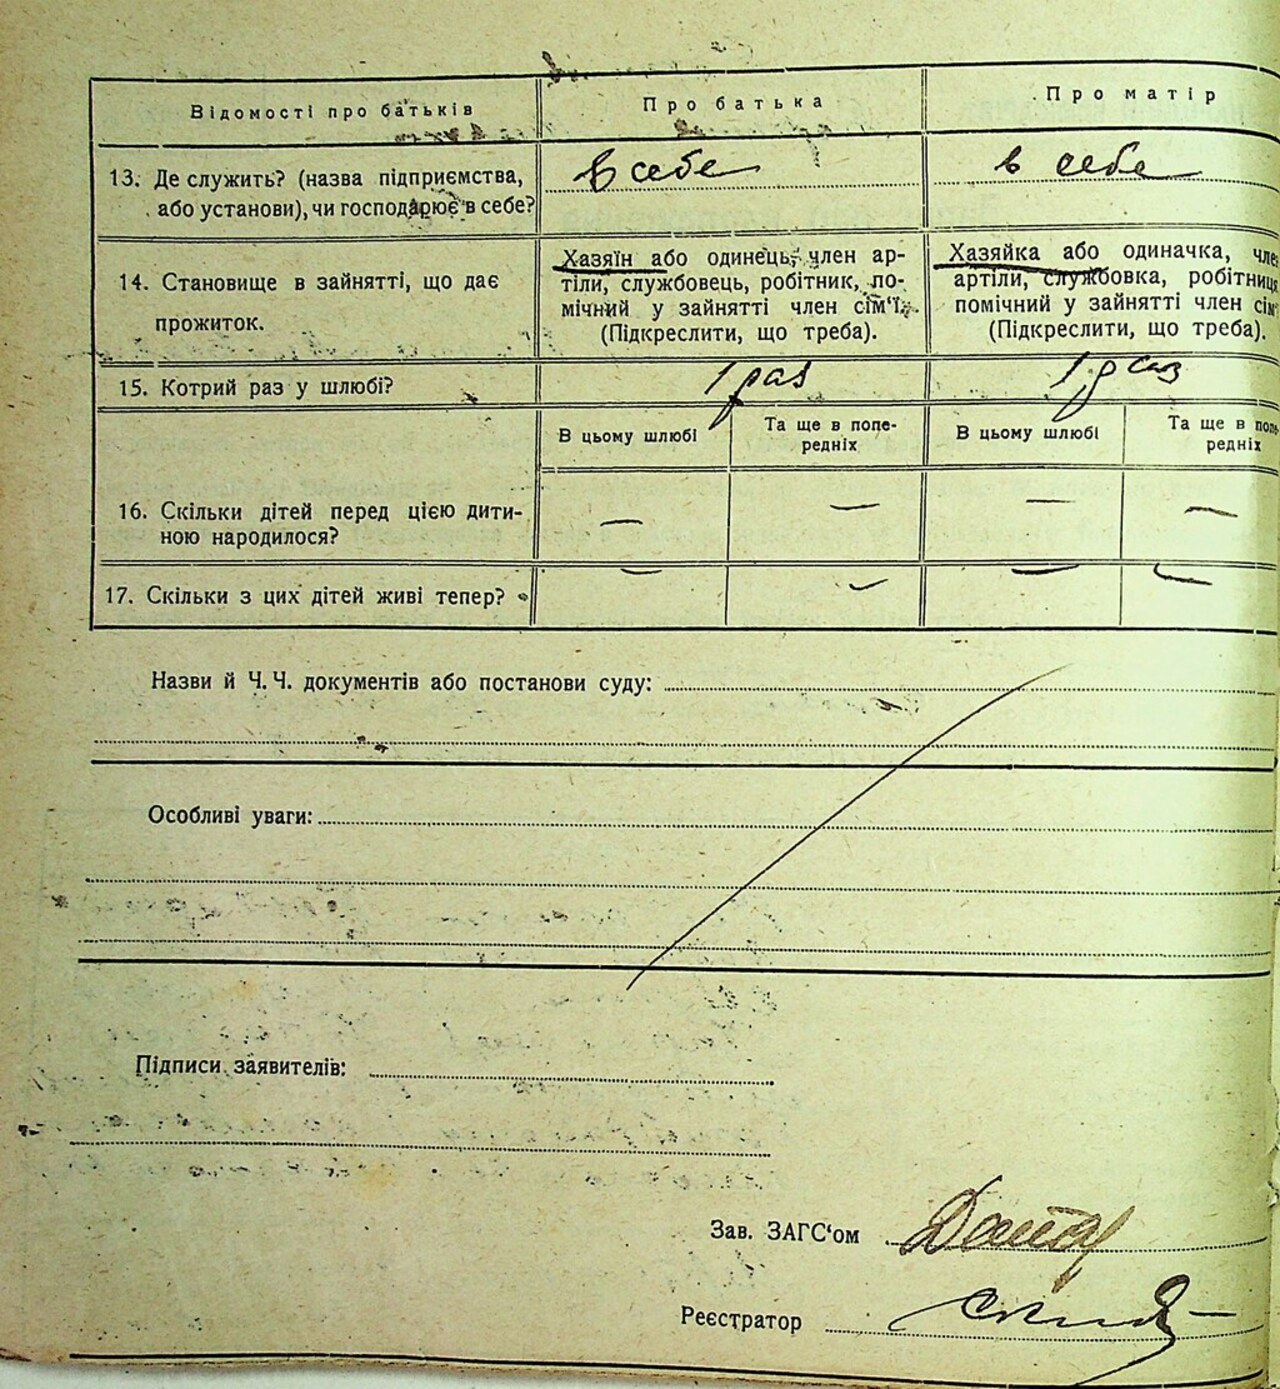 Відомості про батьків
Про батька
Про матір
13. Де служить? (назва підприємства,
або установи), чи господарює в себе?
в себе
в себе
14. Становище в зайнятті, що дає
прожиток.
Хазяїн або одинець, член ар-
тіли, службовець, робітник, по-
мічний у зайнятті член сім'ї.
(Підкреслити, що треба).
Хазяйка або одиначка, член
артіли, службовка, робітниця
помічний у зайнятті член сім'
(Підкреслити, що треба).
15. Котрий раз у шлюбі?
1 раз
1 раз
В цьому шлюбі
Та ще в попе-
редніх
В цьому шлюбі
Та ще в попе-
редніх
16. Скільки дітей перед цією дити-
ною народилося?
— — — —
17. Скільки з цих дітей живі тепер?
— — — —
Назви й Ч. Ч. документів або постанови суду:
Особливі уваги:
Підписи заявителів:
Зав. ЗАГС'ом
Реєстратор